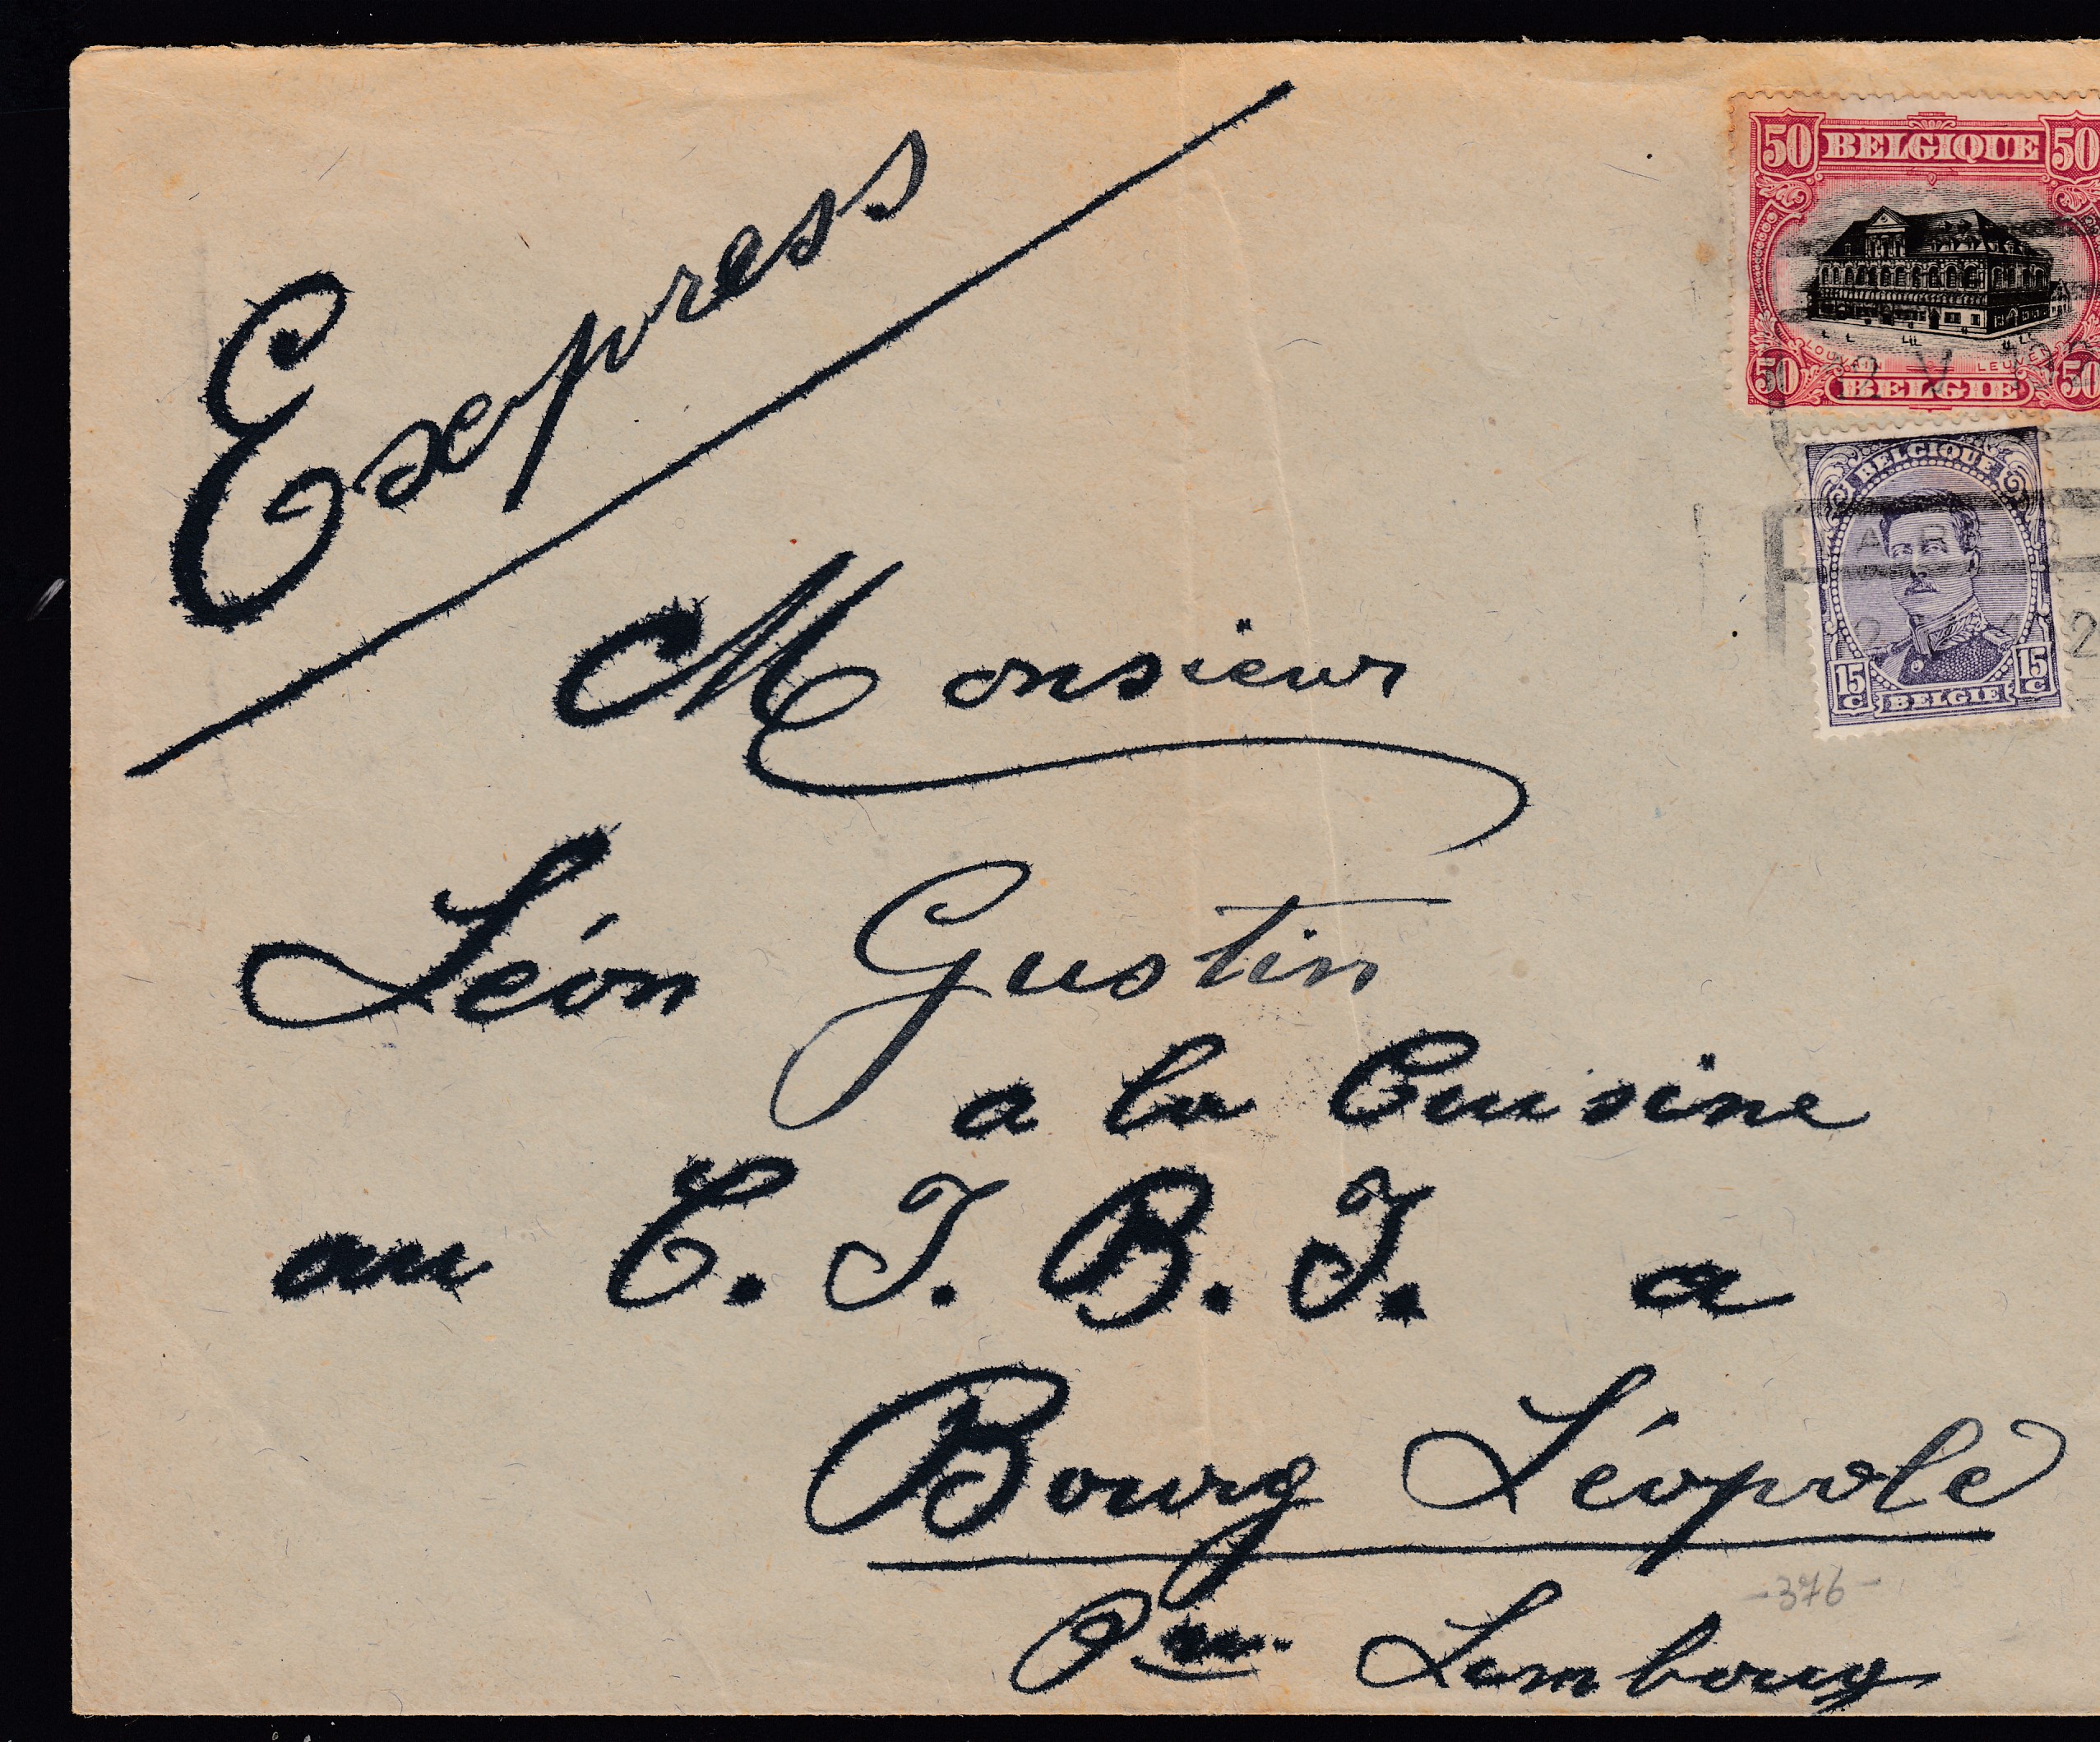 Express
50 BELGIQUE 50
LOUVAIN LEUVEN
50 BELGIE 50
BELGIQUE
15 C BELGIE 15 C
Monsieur
Léon Gustin
a la Cuisine
au C. I. B. I. a
Bourg Léopold
-376-
Limbourg